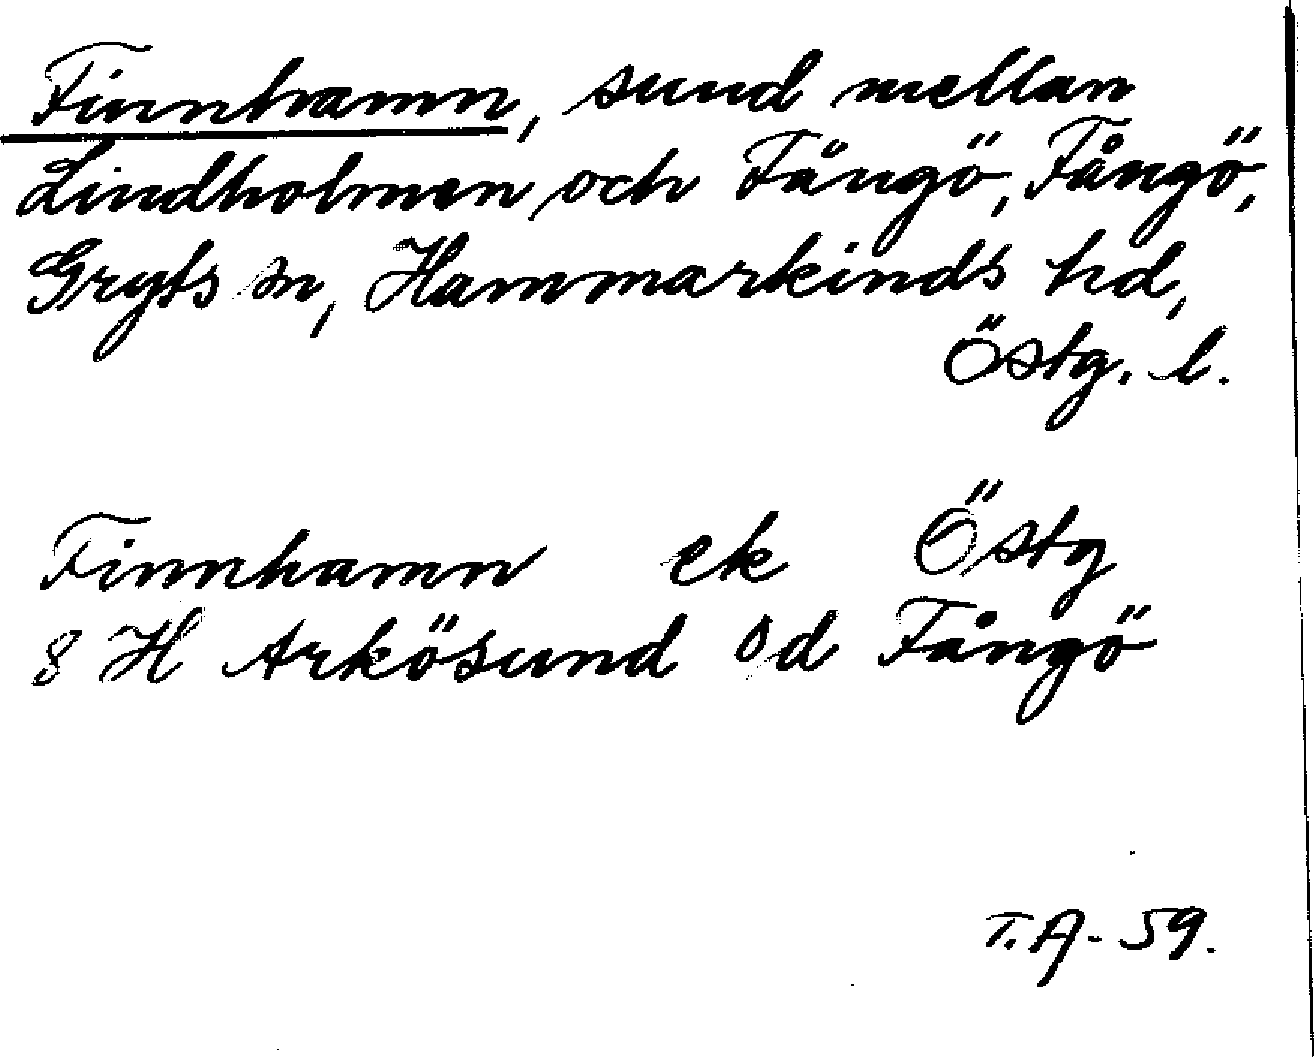 Finnhamn, sund mellan
Lindholmen och Fångö, Fångö,
Gryts sn, Hammarkinds hd,
Östg. l.
Finnhamn ek Östg
8 H Arkösund Sd Fångö
T.A - 59.